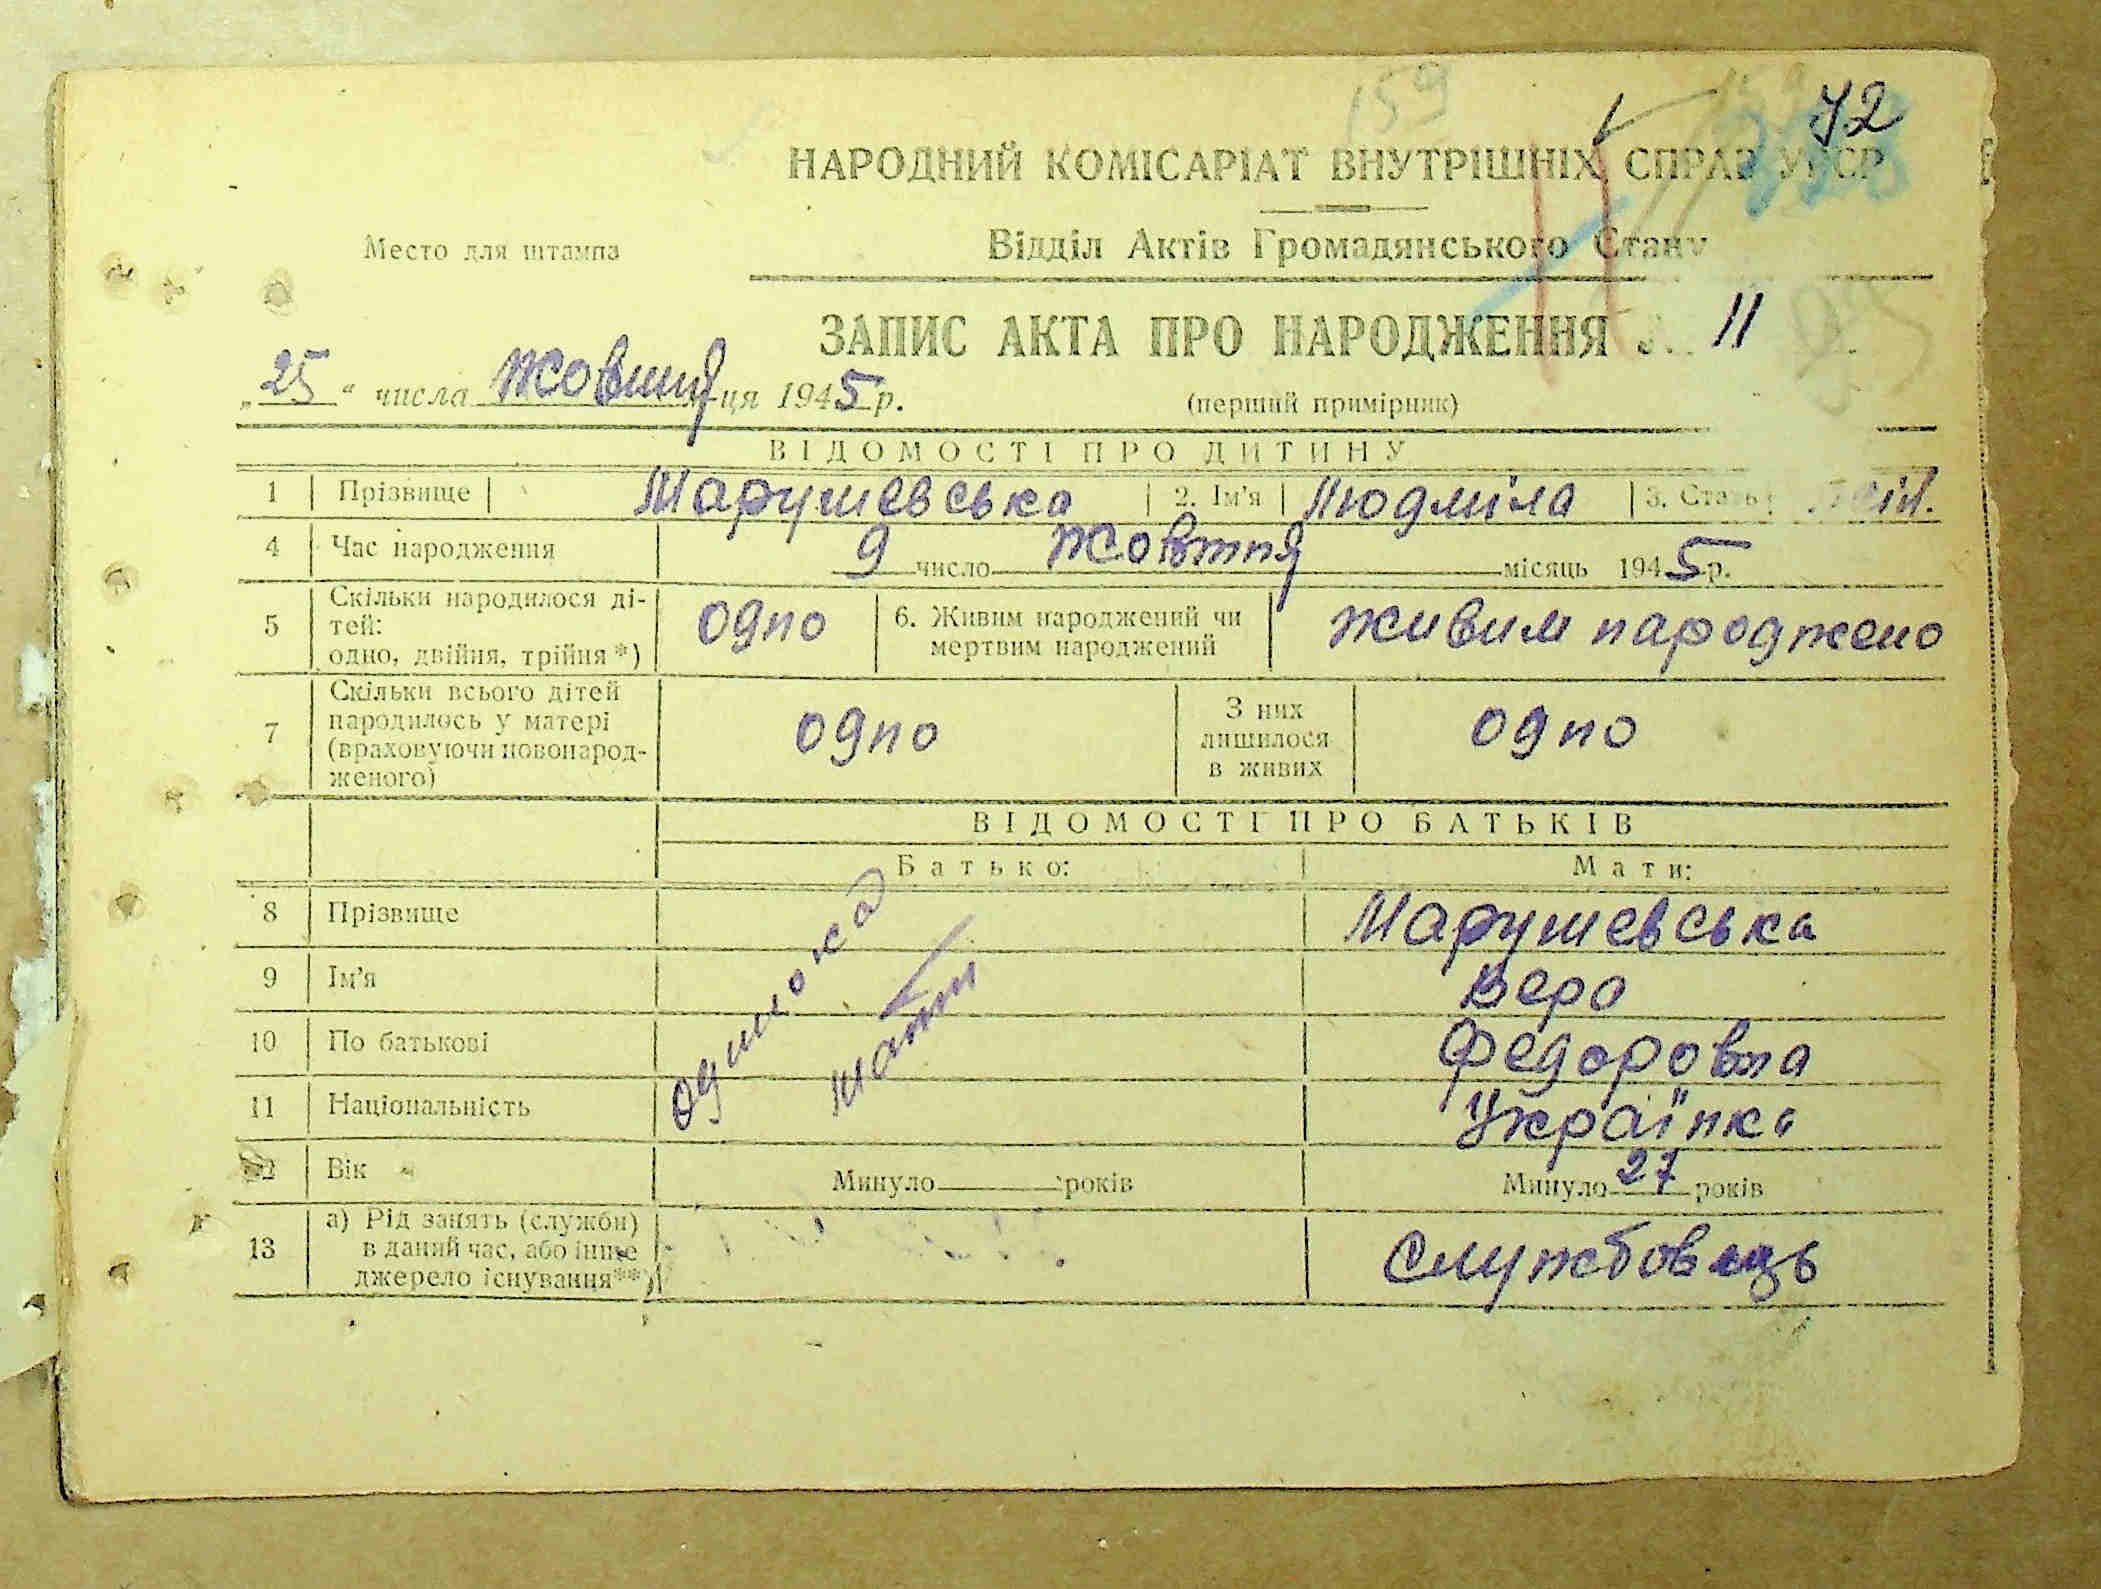 159
72
НАРОДНИЙ КОМІСАРІАТ ВНУТРІШНІХ СПРАВ УРСР
Место для штампа
Відділ Актів Громадянського Стану
ЗАПИС АКТА ПРО НАРОДЖЕННЯ № 11
„25“ числа Жовтня ця 1945 р.
(перший примірник)
ВІДОМОСТІ ПРО ДИТИНУ
1 Прізвище Марушевська 2. Ім'я Людміла 3. Стать
4 Час народження 9 число Жовтня місяць 1945 р.
5 Скільки народилося ді-
тей:
одно, двійня, трійня *) одно 6. Живим народжений чи
мертвим народжений живим народжено
7 Скільки всього дітей
народилось у матері
(враховуючи новонарод-
женого) одно З них
лишилося
в живих одно
ВІДОМОСТІ ПРО БАТЬКІВ
Батько: Мати:
одинока
мати
8 Прізвище Марушевська
9 Ім'я Вера
10 По батькові Федоровна
11 Національність Українка
12 Вік Минуло років Минуло 27 років
13 а) Рід занять (служби)
в даний час, або інше
джерело існування**) Службовець